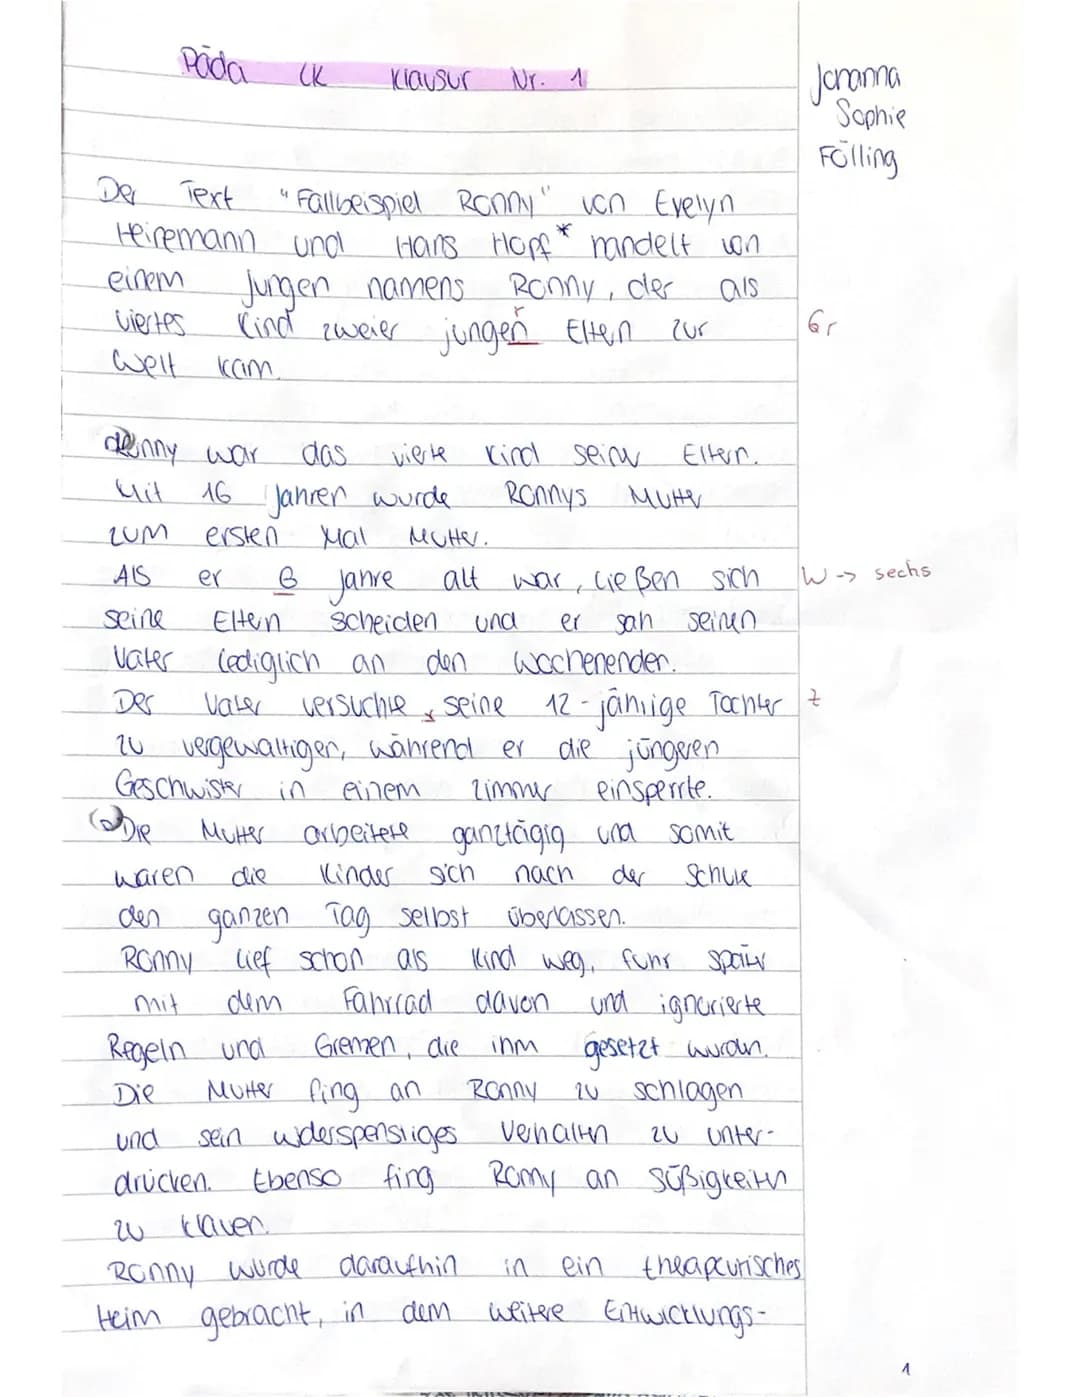 Päda LK Klausur Nr. 1
Johanna
Sophie
Fölling
Der Text "Fallbeispiel Ronny" von Evelyn
Heinemann und Hans Hopf* handelt von
einem Jungen namens Ronny, der als
viertes Kind zweier jungen Eltern zur
r
Gr
Welt kam.
Ronny war das vierte Kind seiner Eltern.
Mit 16 Jahren wurde Ronnys Mutter
zum ersten Mal Mutter.
Als er 6 Jahre alt war, ließen sich
W -> sechs
seine Eltern scheiden und er sah seinen
Vater lediglich an den Wochenenden.
Der Vater versuchte seine 12-jährige Tochter
Z
zu vergewaltigen, während er die jüngeren
Geschwister in einem Zimmer einsperrte.
Die Mutter arbeitete ganztägig und somit
waren die Kinder sich nach der Schule
den ganzen Tag selbst überlassen.
Ronny lief schon als Kind weg, fuhr später
mit dem Fahrrad davon und ignorierte
Regeln und Grenzen, die ihm gesetzt wurden.
Die Mutter fing an Ronny zu schlagen
und sein widerspenstiges Verhalten zu unter-
drücken. Ebenso fing Ronny an Süßigkeiten
zu klauen.
Ronny wurde daraufhin in ein therapeutisches
Heim gebracht, in dem weitere Entwicklungs-
1